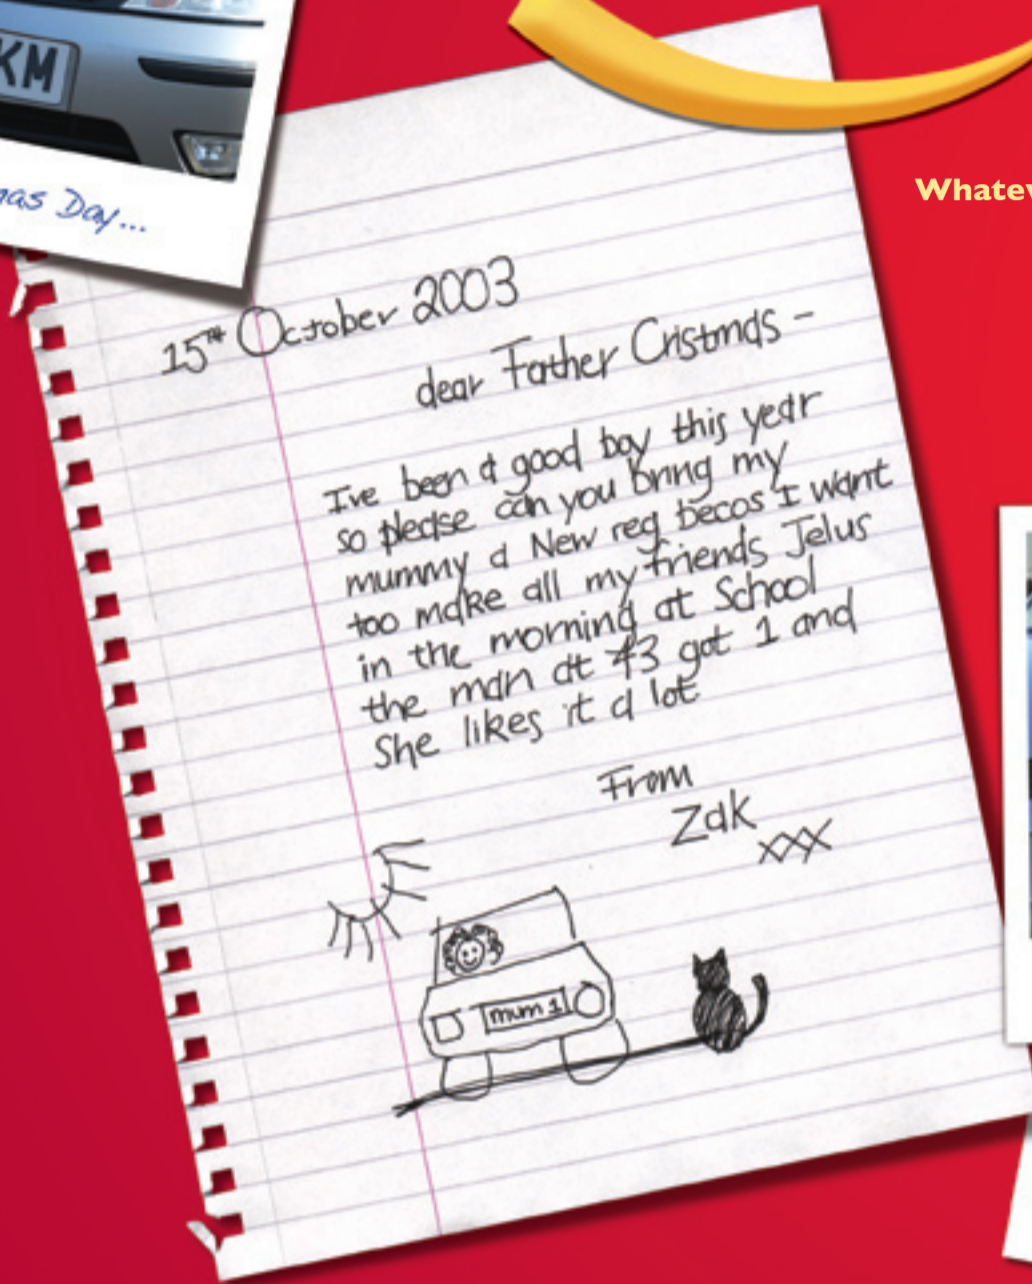 KM
mas Day...
Whatev
15TH October 2003
dear Father Cristmas -
Ive been a good boy this year
so please can you bring my
mummy a New reg becos I want
too make all my friends Jelus
in the morning at School
the man at 43 got 1 and
She likes it a lot
From
Zak
xxx
mum 1